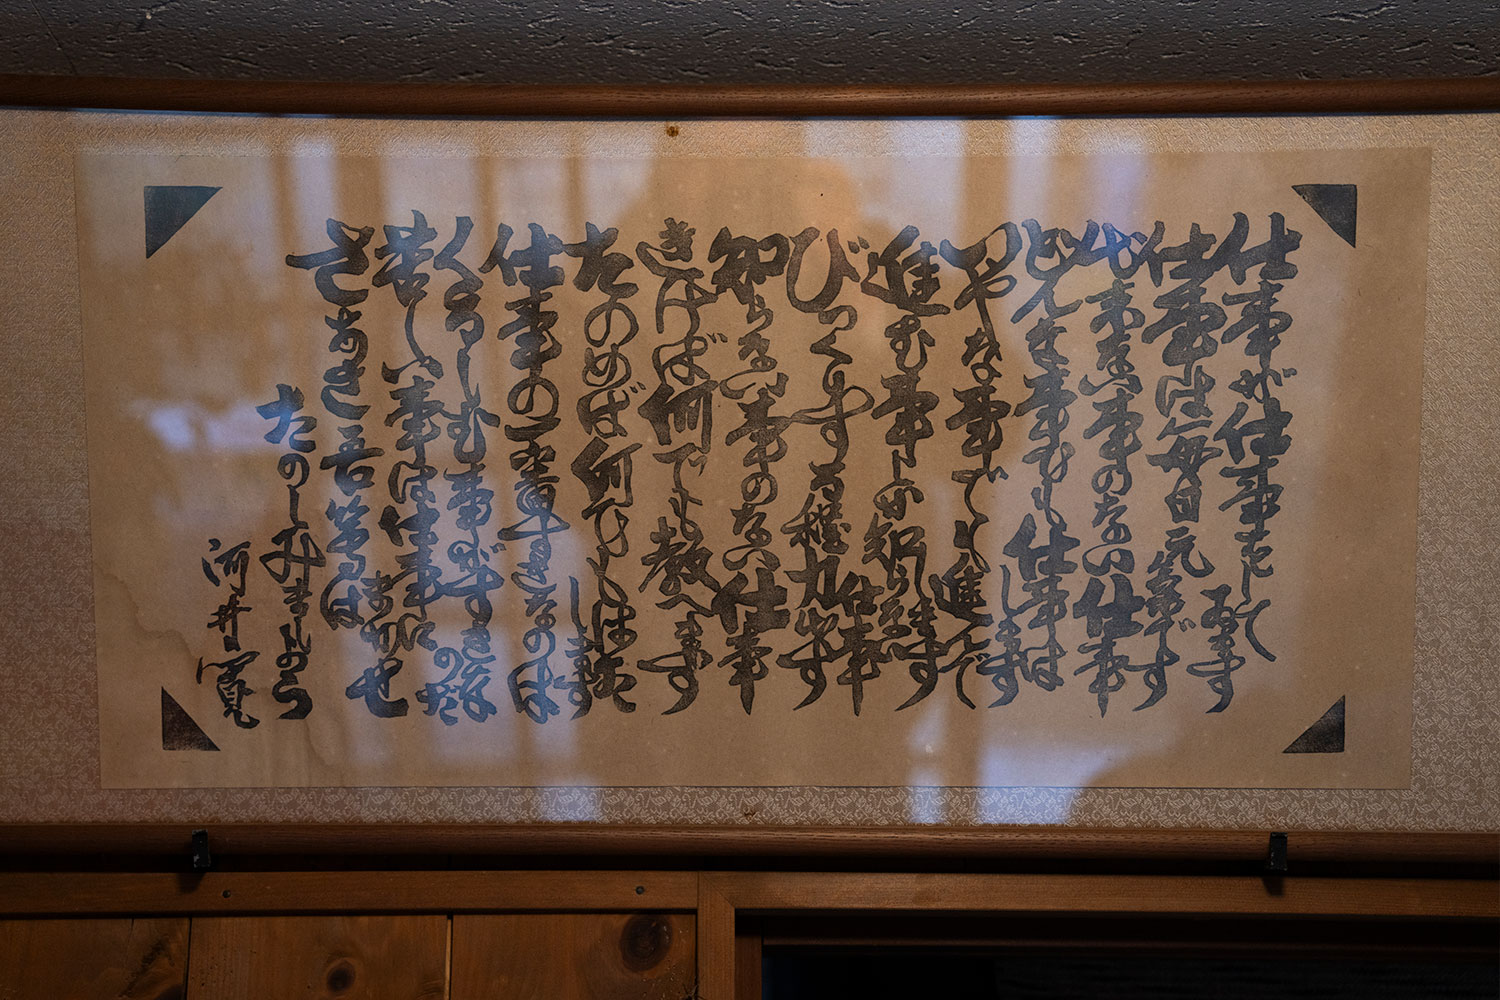 仕事が仕事をして居ます
仕事は毎日元気です
出来ない事のない仕事
どんな事も仕事はします
いやな事でも進んでします
進む事しか知らない仕事
びっくりする程力出す
知らない事のない仕事
きけば何でも教へます
たのめば何でもはたします
仕事の一番すきなのは
くるしむ事がすきなのだ
苦しい事は仕事にまかせ
さあさ吾等は
たのしみましょう
河井寛